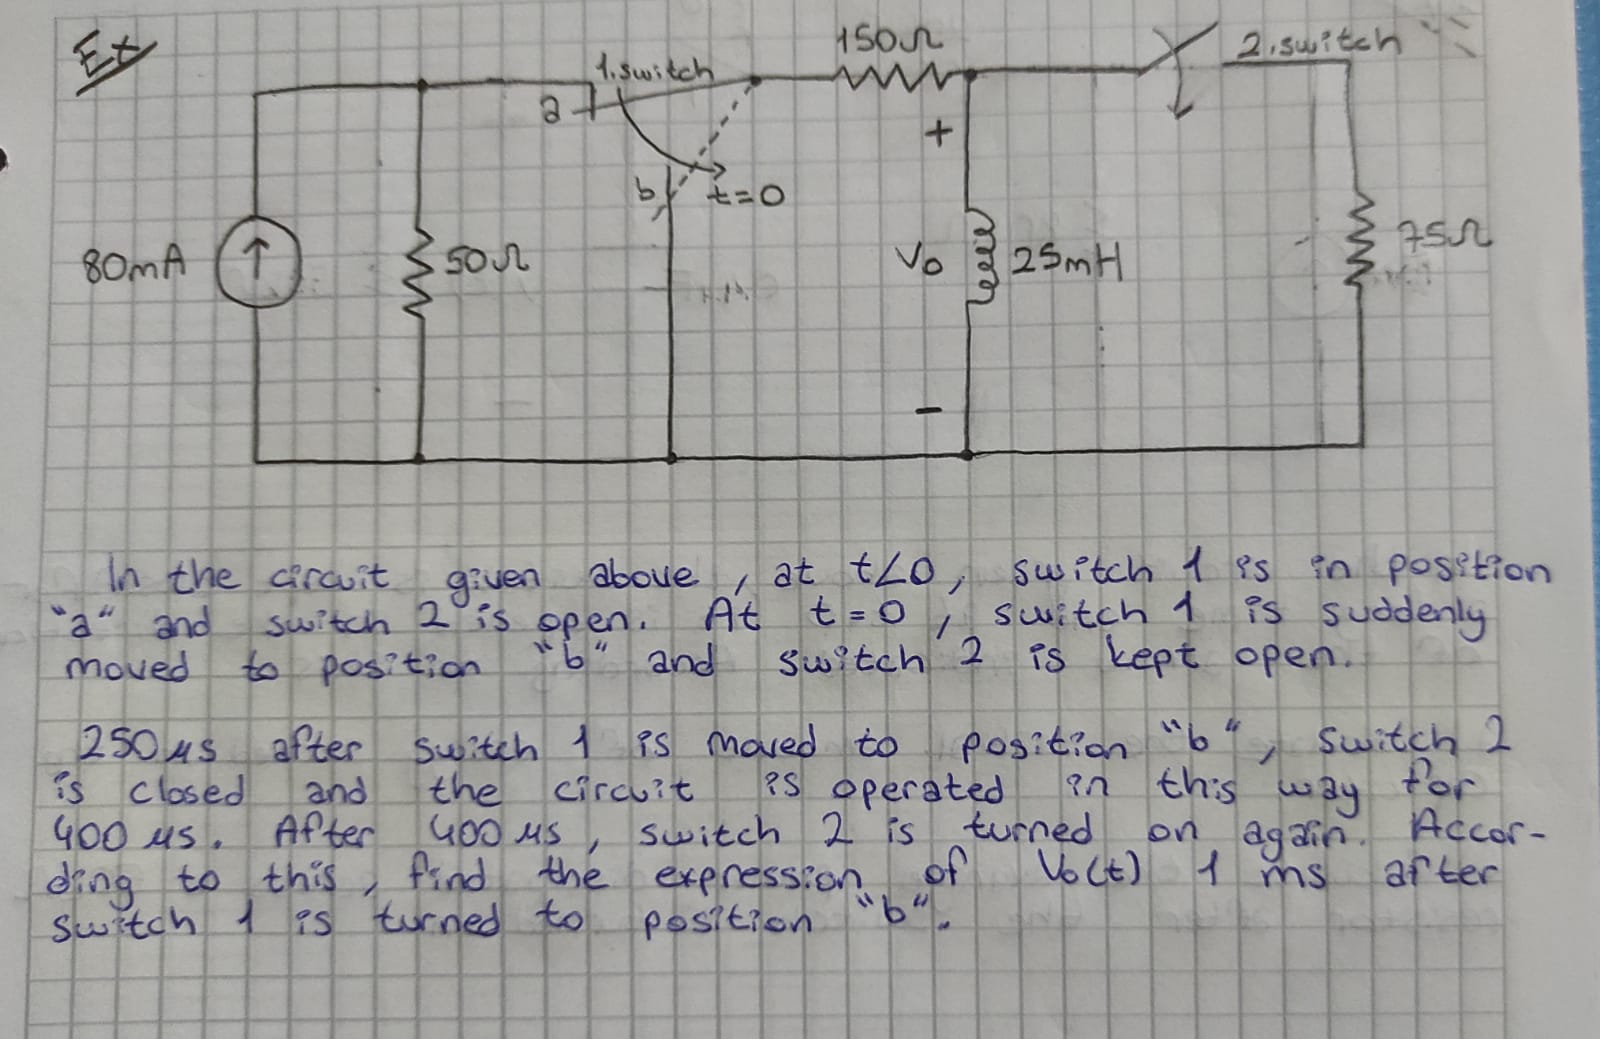 Ex
150Ω
1.switch
2.switch
a
+
b
t=0
80mA
50Ω
Vo
25mH
75Ω
-
In the circuit given above, at t<0, switch 1 is in position
"a" and switch 2 is open. At t=0, switch 1 is suddenly
moved to position "b" and switch 2 is kept open.
250μs after switch 1 is moved to position "b", switch 2
is closed and the circuit is operated in this way for
400 μs. After 400 μs, switch 2 is turned on again. Accor-
ding to this, find the expression of Vo(t) 1 ms after
switch 1 is turned to position "b".